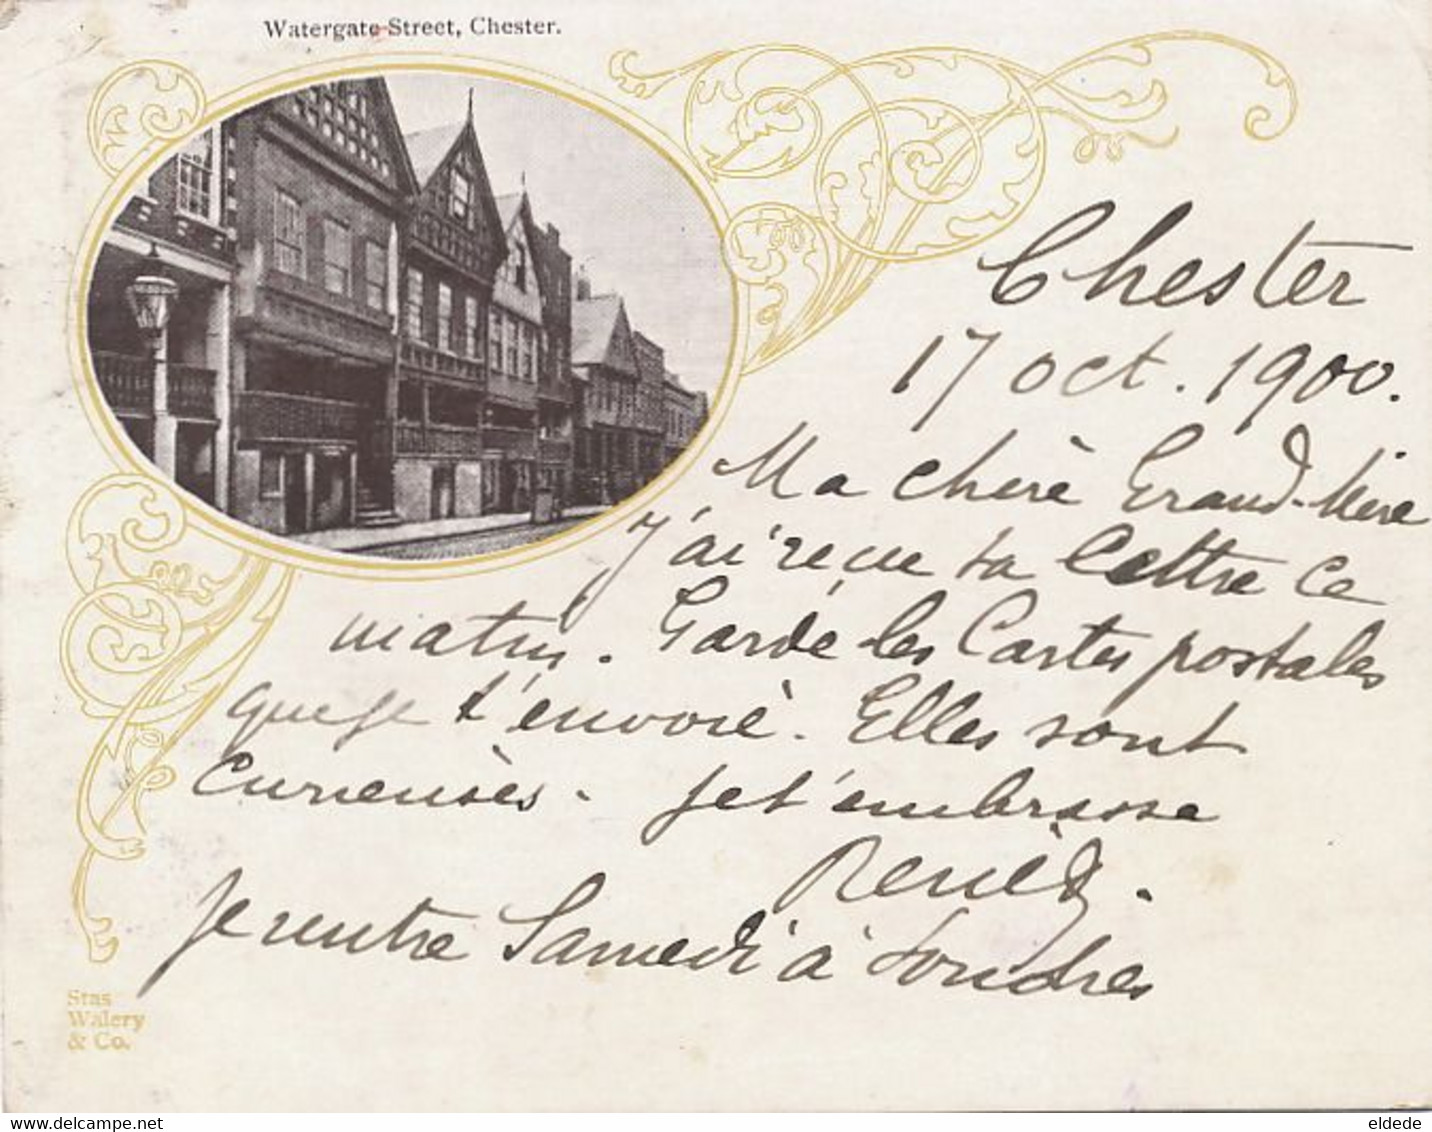 Watergate Street, Chester.
Chester
17 oct. 1900.
Ma chère Grand-Mère
J'ai reçue ta lettre ce
matin. Garde les Cartes postales
que je t'envoie. Elles sont
curieuses. Je t'embrasse
Renée.
Je rentre Samedi à Londres
Stas
Walery
& Co.
www.delcampe.net
eldede